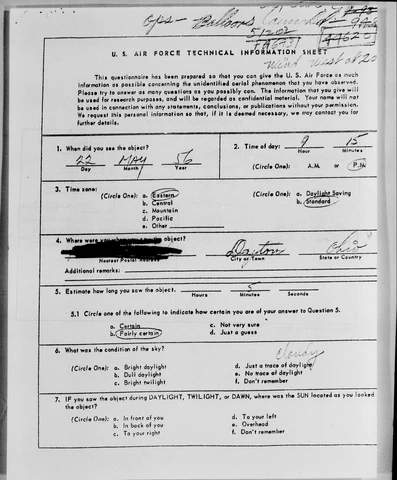 ops- Balloons
U. S. AIR FORCE TECHNICAL INFORMATION SHEET
This questionnaire has been prepared so that you can give the U. S. Air Force as much
information as possible concerning the unidentified aerial phenomenon that you have observed.
Please try to answer as many questions as you possibly can. The information that you give will
be used for research purposes, and will be regarded as confidential material. Your name will not
be used in connection with any statements, conclusions, or publications without your permission.
We request this personal information so that, if it is deemed necessary, we may contact you for
further details.
1. When did you see the object?
22 MAY 56
Day Month Year
2. Time of day: 9 15
Hour Minutes
(Circle One): A.M. or P.M.
3. Time zone:
(Circle One): a. Eastern
b. Central
c. Mountain
d. Pacific
e. Other
(Circle One): a. Daylight Saving
b. Standard
4. Where were you when you saw the object?
Dayton Ohio
Nearest Postal Address City or Town State or Country
Additional remarks:
5. Estimate how long you saw the object. 5
Hours Minutes Seconds
5.1 Circle one of the following to indicate how certain you are of your answer to Question 5.
a. Certain
b. Fairly certain
c. Not very sure
d. Just a guess
6. What was the condition of the sky?
cloudy
(Circle One): a. Bright daylight
b. Dull daylight
c. Bright twilight
d. Just a trace of daylight
e. No trace of daylight
f. Don't remember
7. IF you saw the object during DAYLIGHT, TWILIGHT, or DAWN, where was the SUN located as you looked
the object?
(Circle One): a. In front of you
b. In back of you
c. To your right
d. To your left
e. Overhead
f. Don't remember